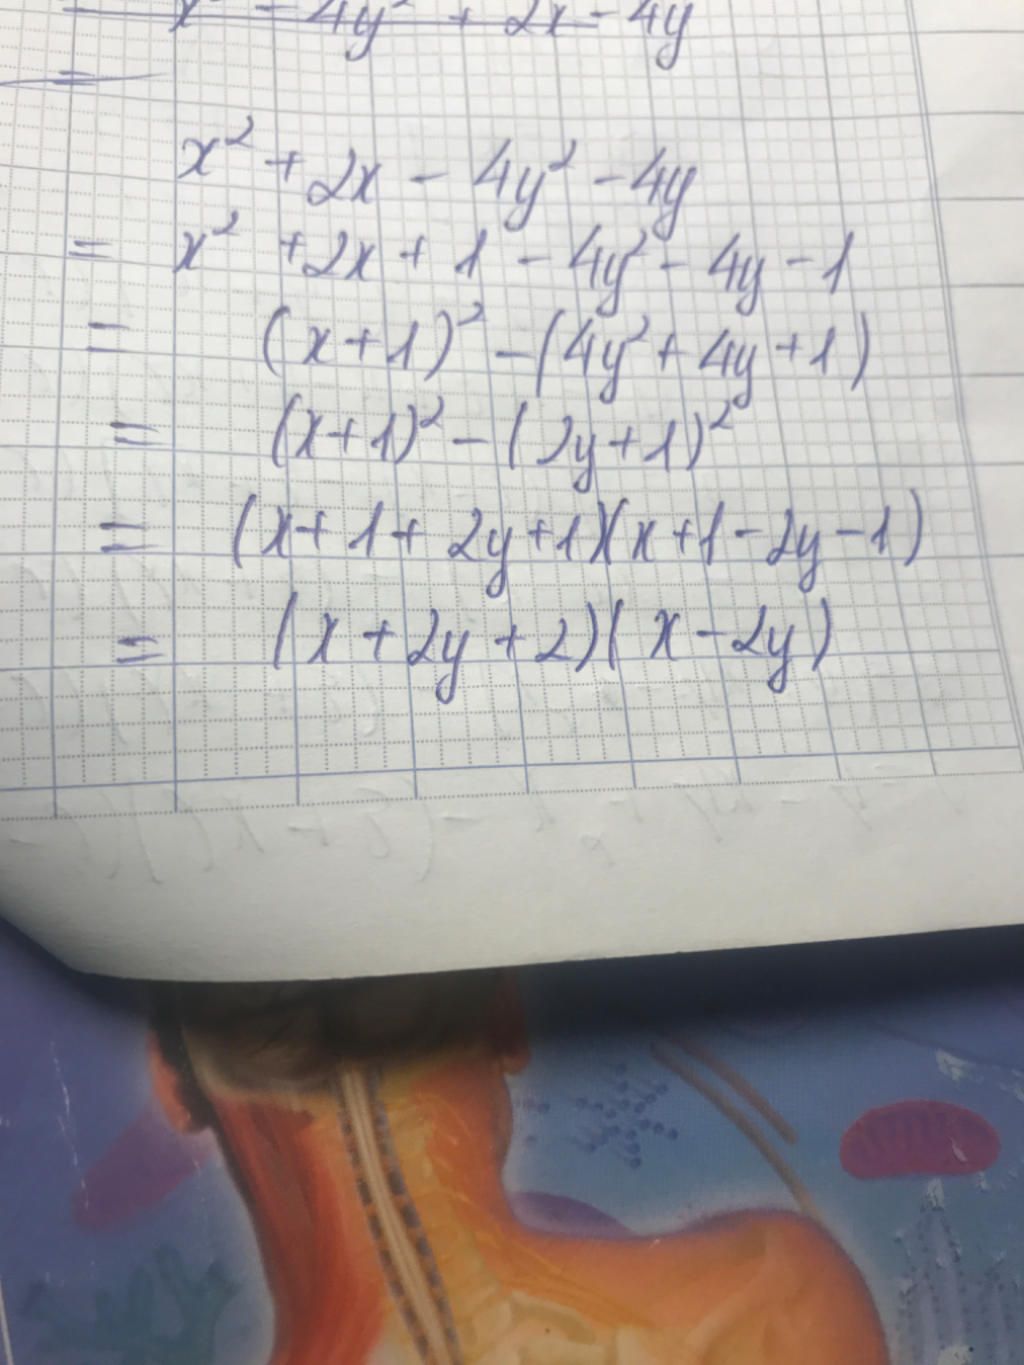 x² - 4y² + 2x - 4y
=
x² + 2x - 4y² - 4y
= x² + 2x + 1 - 4y² - 4y - 1
= (x+1)² - (4y² + 4y + 1)
= (x+1)² - (2y+1)²
= (x+1+2y+1)(x+1-2y-1)
= (x+2y+2)(x-2y)